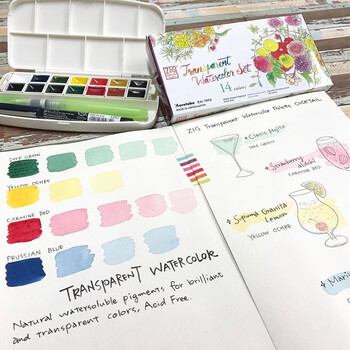 ZIG
Transparent
Watercolor Set
14 colors
Kuretake
ZIG Transparent Watercolor Palette COCKTAIL
Classic Mojito
DEEP GREEN
Strawberry
CARMINE RED
Sofuma Granita
Lemon
YELLOW OCHRE
DEEP GREEN
YELLOW OCHRE
CARMINE RED
PRUSSIAN BLUE
TRANSPARENT WATERCOLOR
Natural watersoluble pigments for brilliant
and transparent colors, Acid Free.